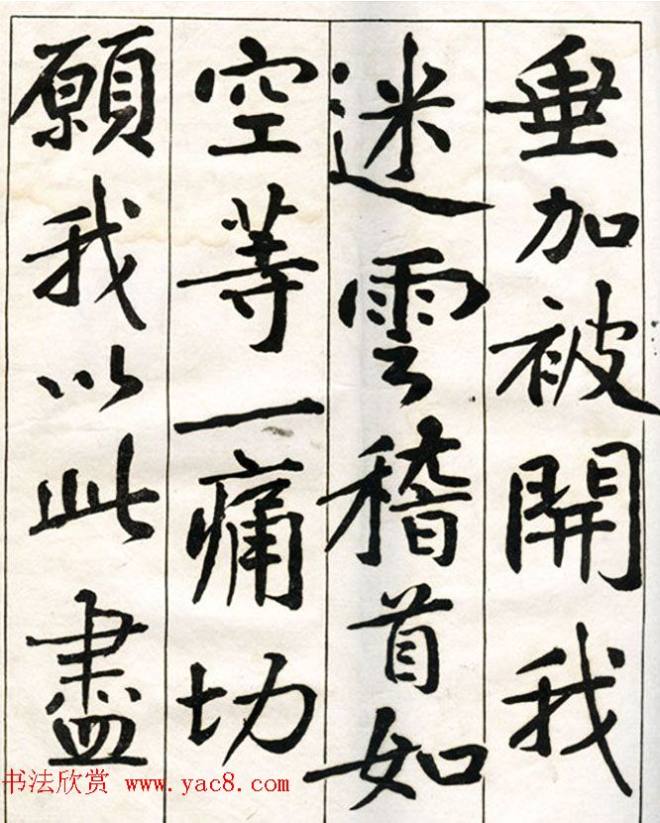 垂加被開我
迷雲稽首如
空等一痛切
願我以此盡
书法欣赏 www.yac8.com